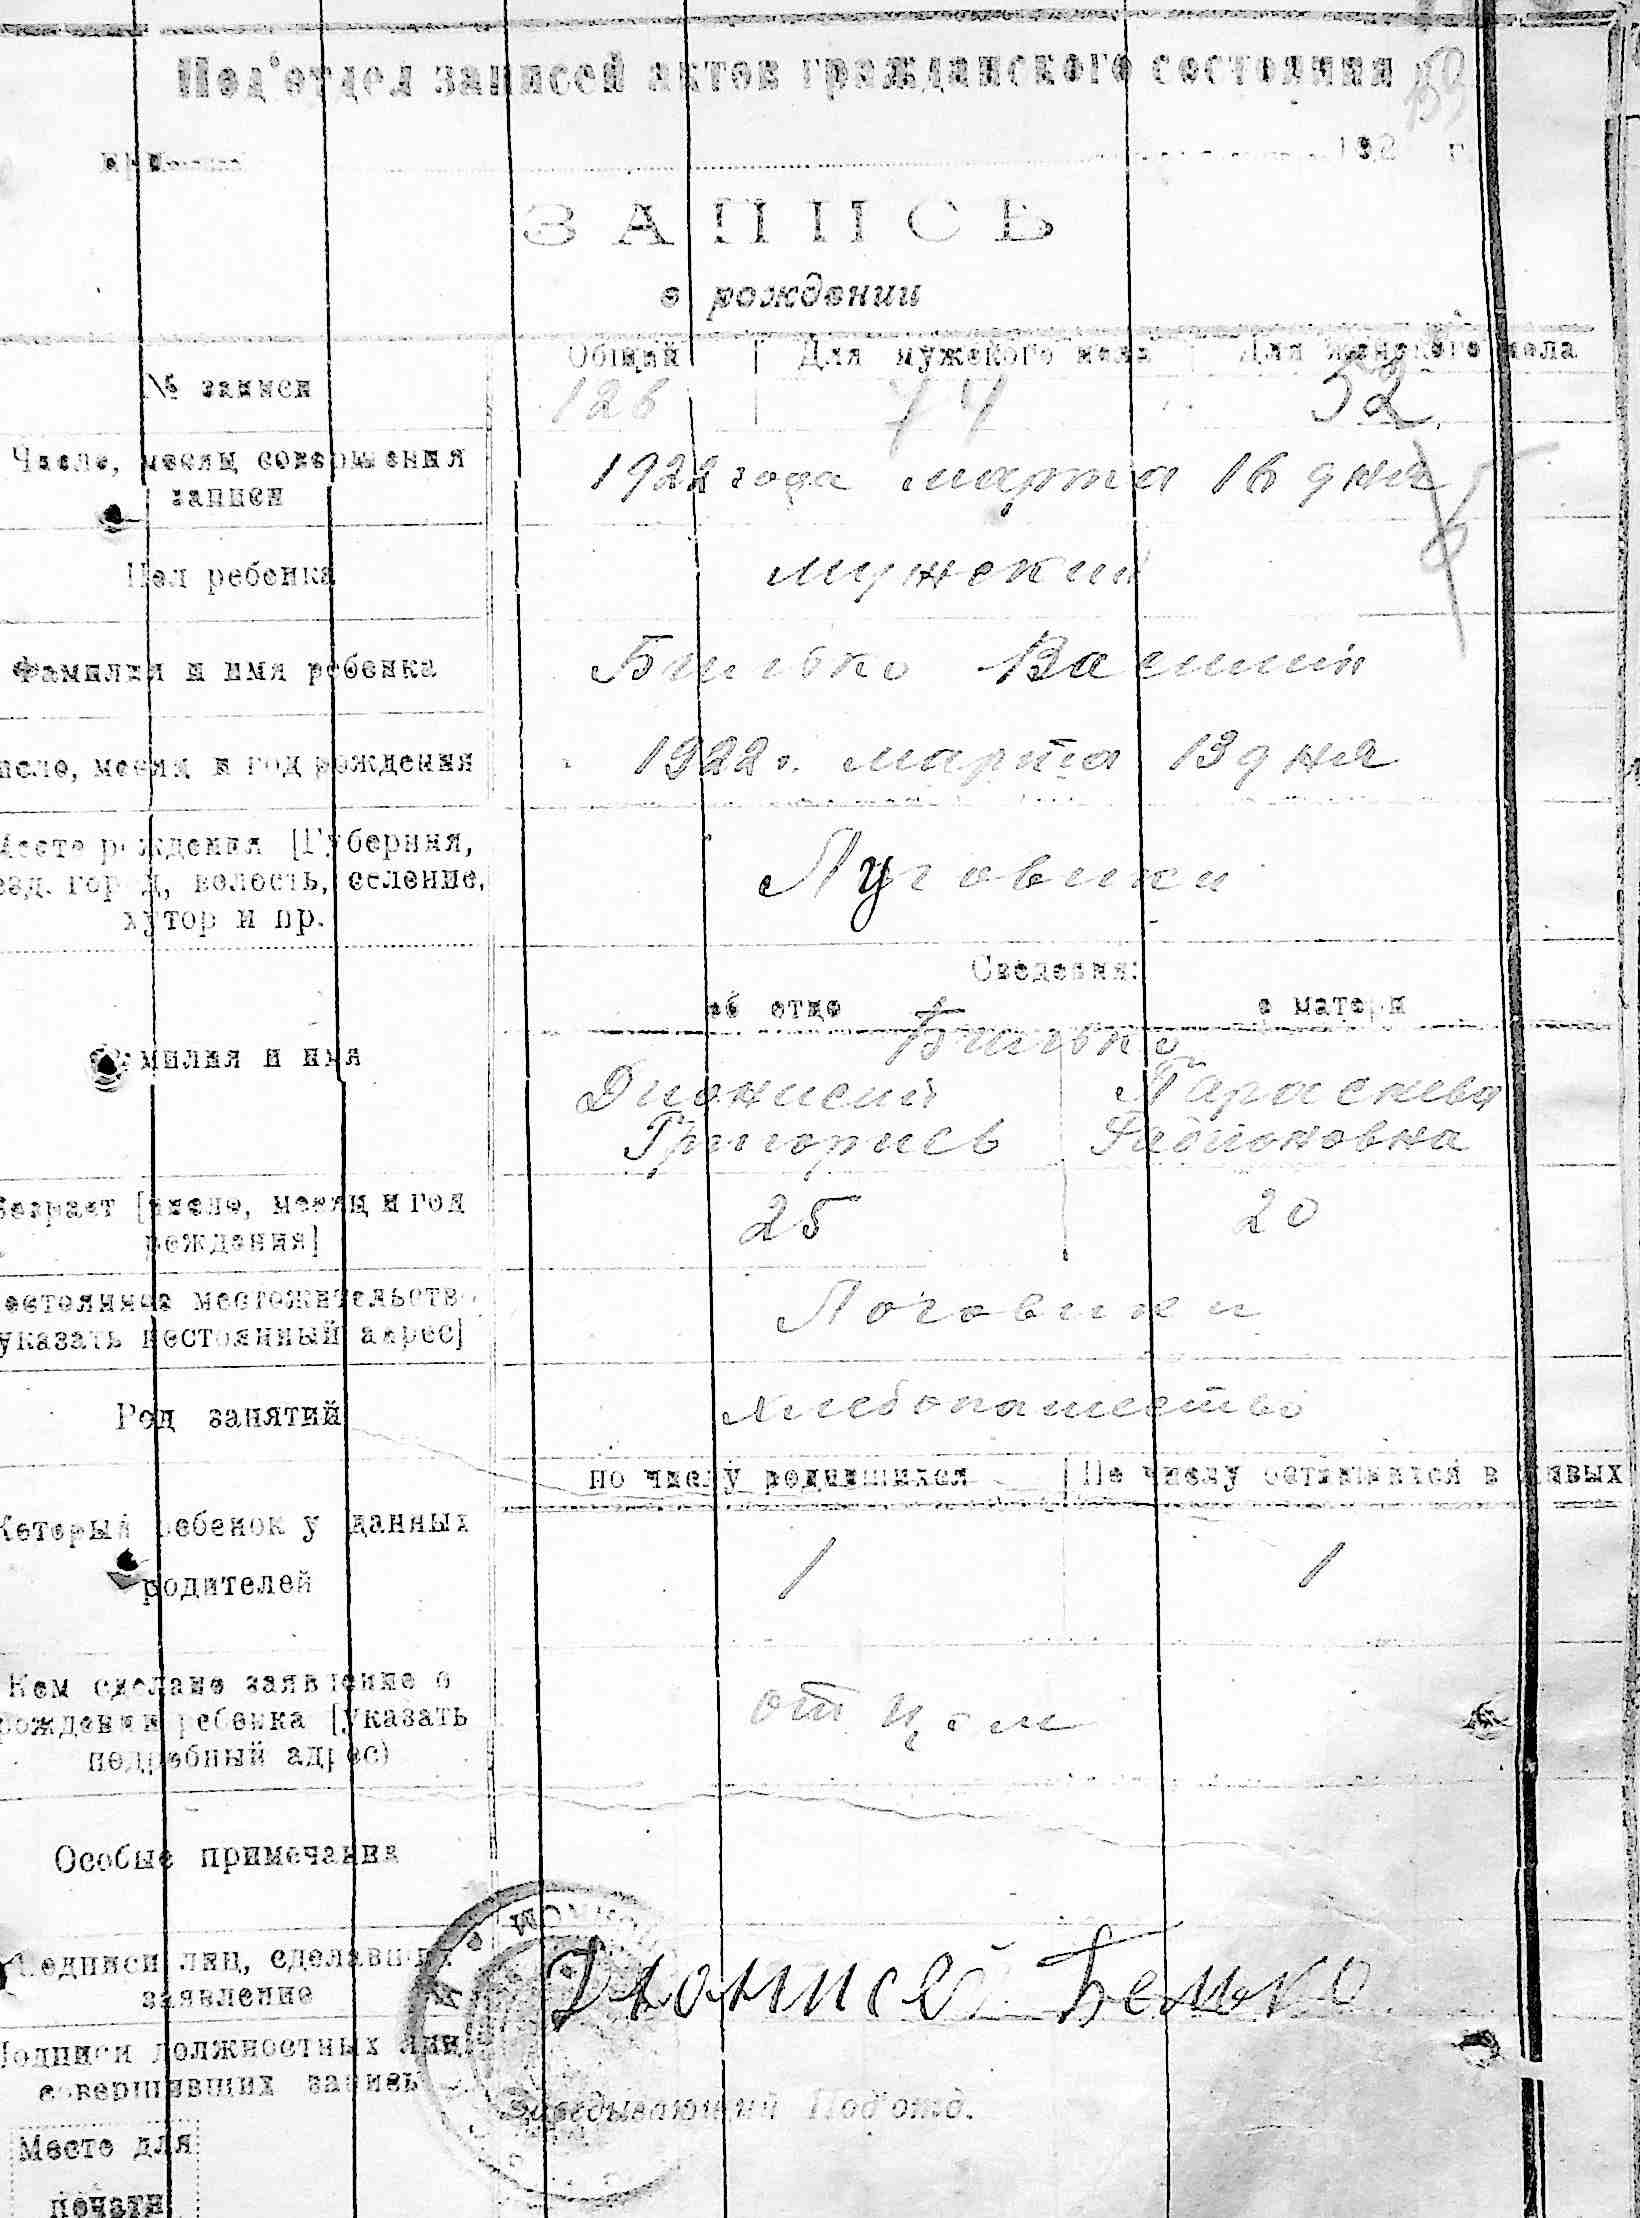 Под'отдел записей актов гражданского состояния
192 г
ЗАПИСЬ
о рождении
Общий Для мужского пола Для женского пола
№ записи 126 74 52
Число, месяц совершения 1922 года марта 16 дня
записи
Пол ребенка мужский
Фамилия и имя ребенка Билько
Число, месяц и год рождения 1922 г. марта 13 дня
Место рождения [Губерния,
уезд, город, волость, селение, Луговики
хутор и пр.
Сведения:
об отце о матери
Билько
Фамилия и имя Дионисий Параскева
Григорьев Радионовна
Возраст [число, месяц и год 25 20
рождения]
Постоянное местожительство Логовики
указать постоянный адрес]
Род занятий хлебопашество
по числу родившихся По числу оставшихся в живых
Который ребенок у данных
родителей 1 1
Кем сделано заявление о
рождении ребенка [указать отцом
подробный адрес)
Особые примечания
Подписи лиц, сделавших Дионисей Белько
заявление
Подписи должностных лиц,
совершивших запись
Заведывающий Под'отд.
Место для
печати